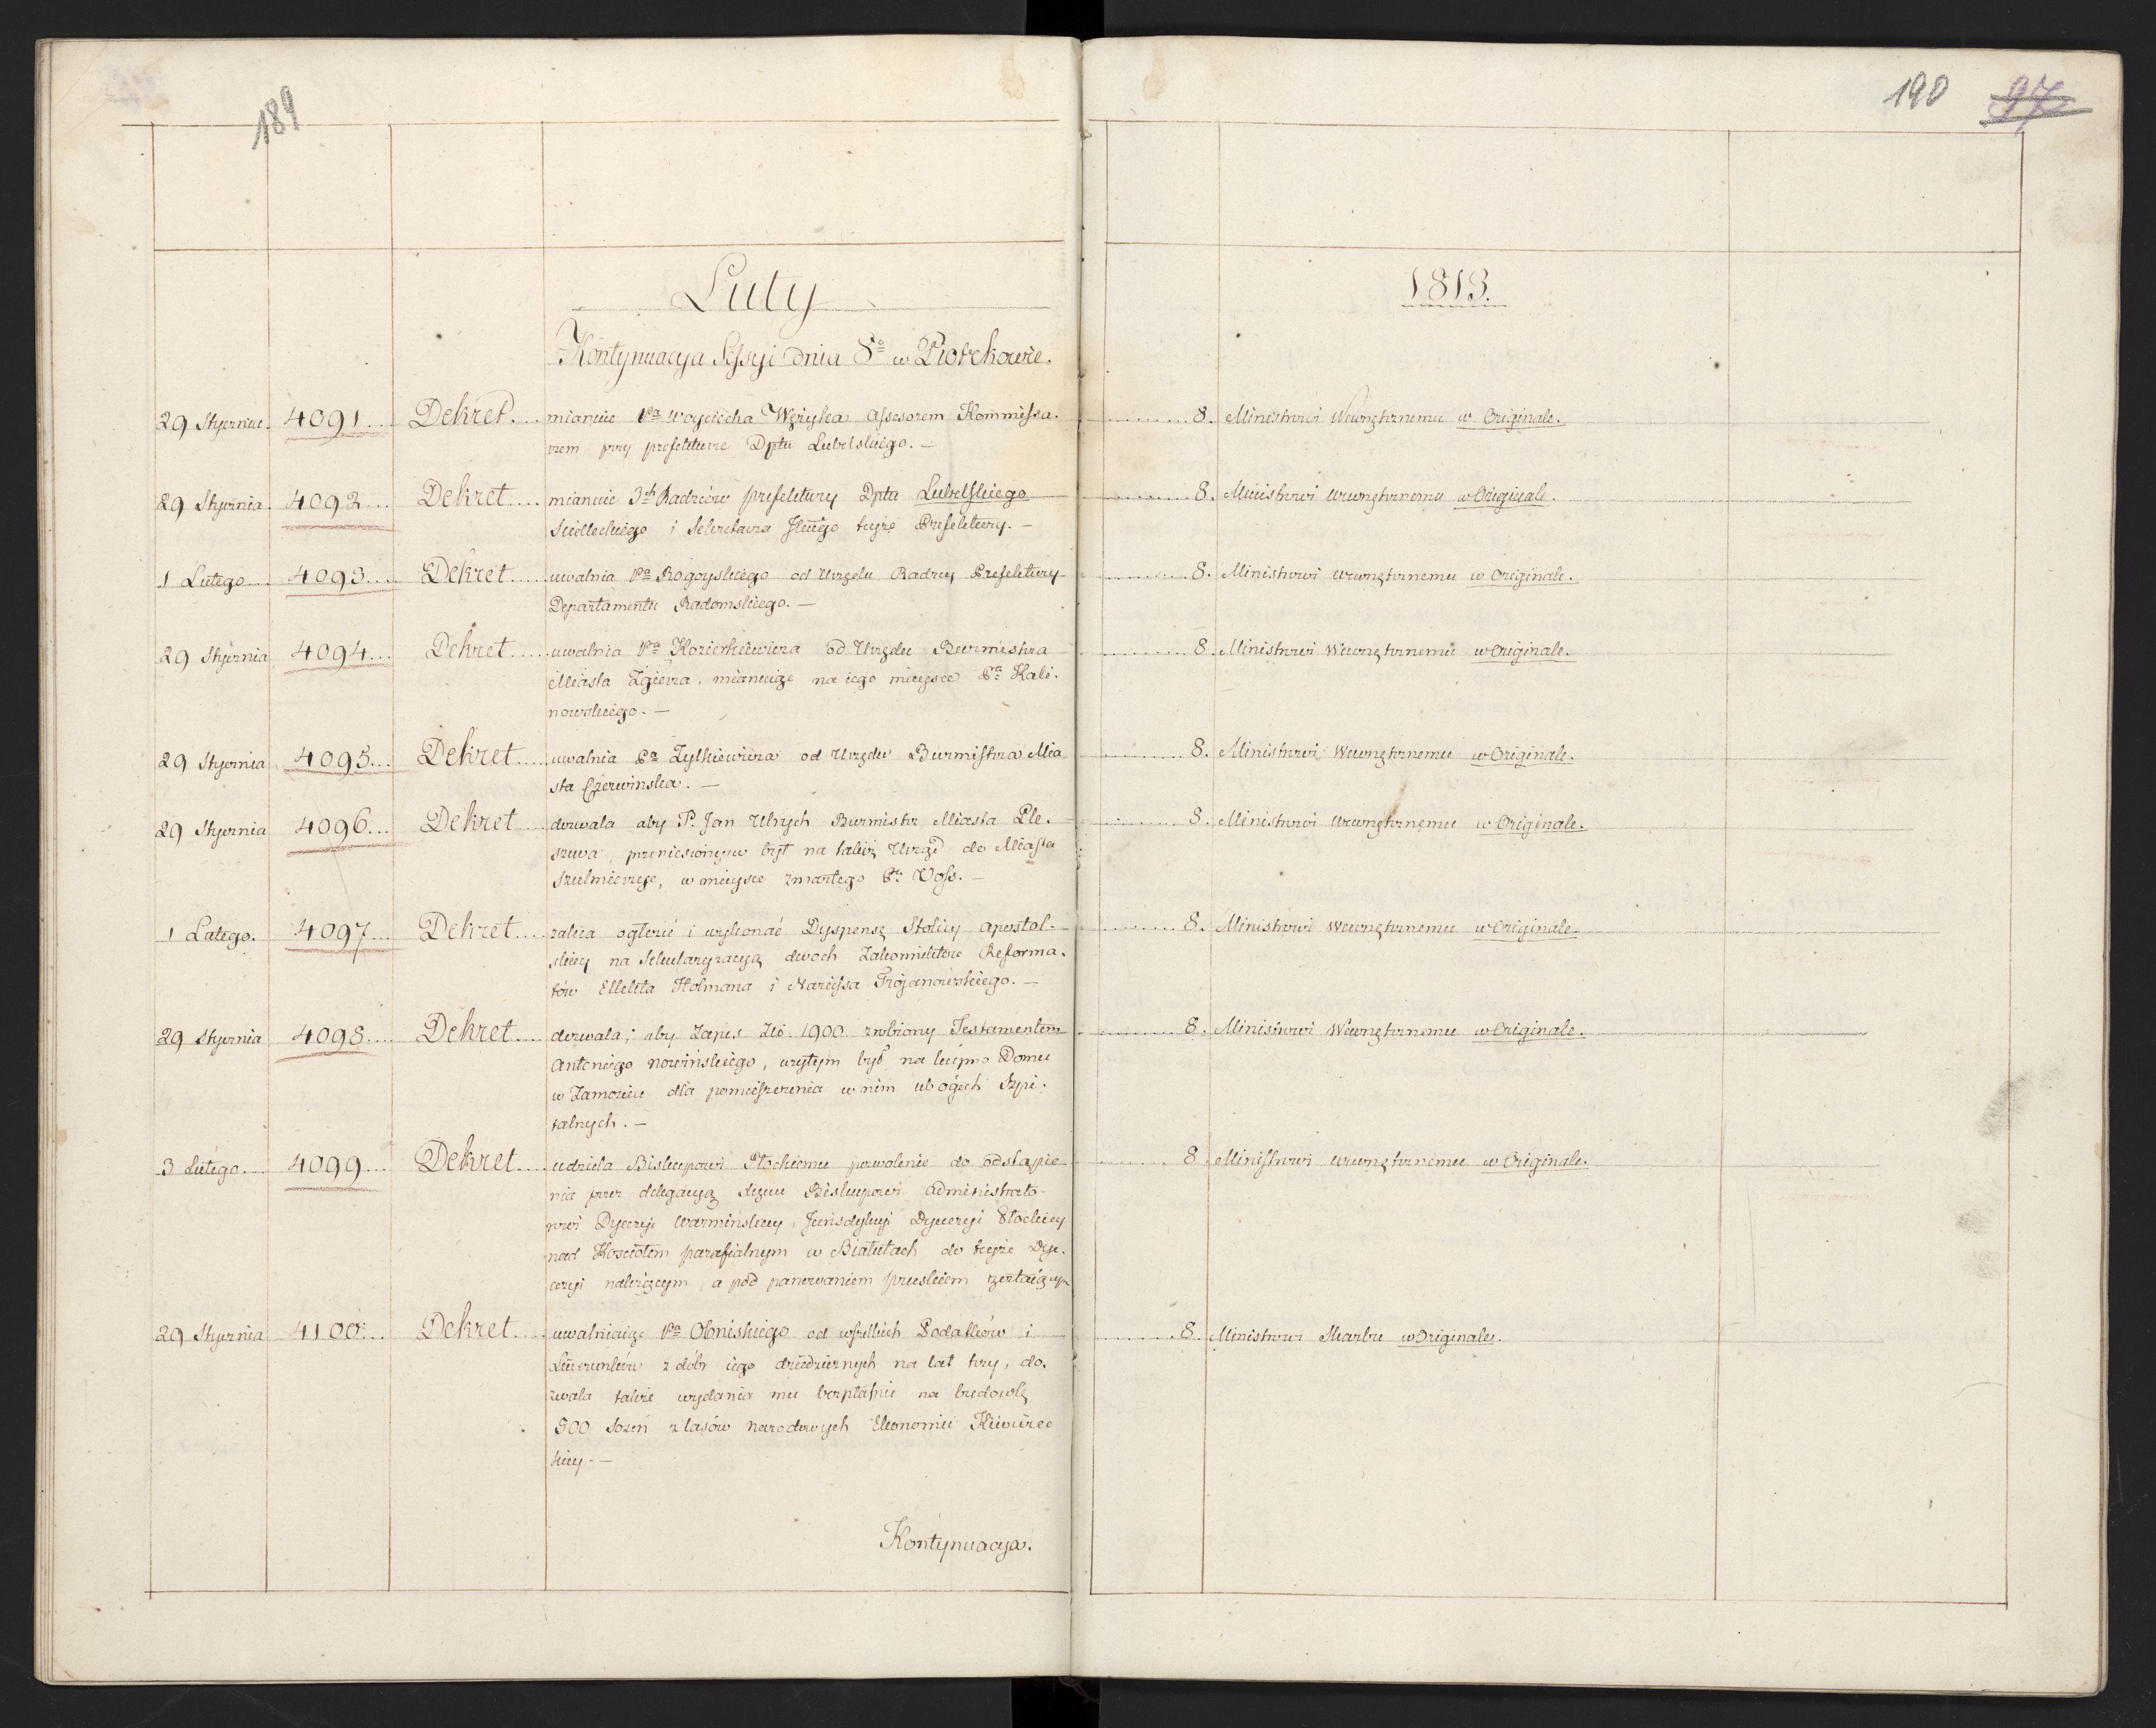 189
190 97
Luty
1813.
Kontynuacya Sessyi dnia 8º w Piotrkowie.
29 Stycznia. 4091... Dekret. mianuie Pa Woyciecha Wężyka Assesorem Kommissa- ......... 8. Ministrowi Wewnętrznemu w Originale.
rzem przy prefekturze Dptu Lubelskiego. —
29 Stycznia. 4092... Dekret.... mianuie 3ch Radzców prefektury Dptu Lubelskiego ......... 8. Ministrowi wewnętrznemu w Originale.
Siedleckiego i Sekretarza Jlnego teyże Prefektury. —
1 Lutego.... 4093.... Dekret..... uwalnia Pa Rogoyskiego od Urzędu Radzcy Prefektury ......... 8. Ministrowi wewnętrznemu w Originale.
Departamentu Radomskiego. —
29 Stycznia 4094... Dekret..... uwalnia Pa od Urzędu Burmistrza ......... 8. Ministrowi Wewnętrznemu w Originale.
Miasta Zgierza, mianuiąc na iego mieysce Pa Kali-
nowskiego. —
29 Stycznia 4095... Dekret.... uwalnia Pa Zylkiewicza od Urzędu Burmistrza Mia ......... 8. Ministrowi Wewnętrznemu w Originale.
sta Czerwinska. —
29 Stycznia 4096... Dekret.... dozwala aby P. Jan Ulrych Burmistrz Miasta Ple- ......... 8. Ministrowi wewnętrznemu w Originale.
szewa, przeniesionym był na takiż Urząd do Miasta
, w mieysce zmarłego Pa Voss. —
1 Lutego. 4097... Dekret.... zaleca ogłosić i wykonać Dyspensę Stolicy Apostol- ......... 8. Ministrowi Wewnętrznemu w Originale.
skiey na Sekularyzacyą dwoch Zakonników Reforma-
tów Elekta Holmana i Narcissa Trojanowskiego. —
29 Stycznia 4098.... Dekret.... dozwala, aby Zapis Zło. 1900 zrobiony Testamentem ......... 8. Ministrowi Wewnętrznemu w Originale.
Antoniego Nowińskiego, użytym był na kupno Domu
w Zamościu dla pomieszczenia w nim ubogich Szpi-
talnych. —
3 Lutego.... 4099... Dekret.... udziela Biskupowi Płockiemu pozwolenie do odstąpie- ......... 8. Ministrowi wewnętrznemu w Originale.
nia przez delegacyą Xięciu Biskupowi Administrato-
rowi Dyecezyi Warmińskiey, Jurisdykcyi Dyecezyi Płockiey
nad Kosciołem parafialnym w Białutach do teyże Dye-
cezyi należącym, a pod panowaniem pruskiem zostaiącym
29 Stycznia 4100... Dekret.... uwalniaiąc Pa Obniskiego od wszelkich Podatków i ......... 8. Ministrowi Skarbu w Originale.
Liwerunków z dóbr iego dziedzicznych na lat trzy, do-
zwala także wydania mu bezpłatnie na budowlę
500 Sosen z lasów narodowych Ekonomii
kiey. —
Kontynuacya.